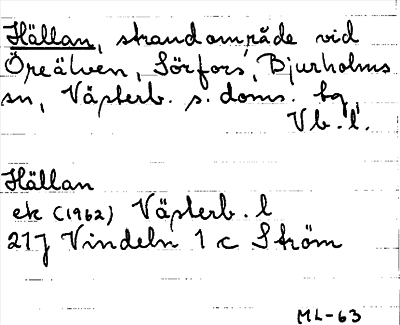 Hällan, strandområde vid
Öreälven, Sörfors, Bjurholms
sn, Västerb. s. doms. hg,
Vb. l.
Hällan
ek (1962) Västerb. l
21J Vindeln 1 c Ström
ML-63